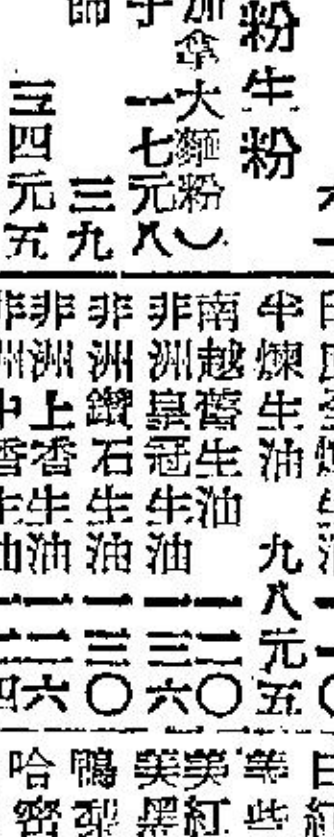 粉生粉
加拿大麵粉︶
一七元八
三九
三四元五
半煉生油 九八元五
南越舊生油 一二〇
非洲皇冠生油 一三六
非洲鑽石生油 一三〇
非洲上香生油 一二六
非洲中香生油 一二四
美紅
美黑
鴨梨
哈密